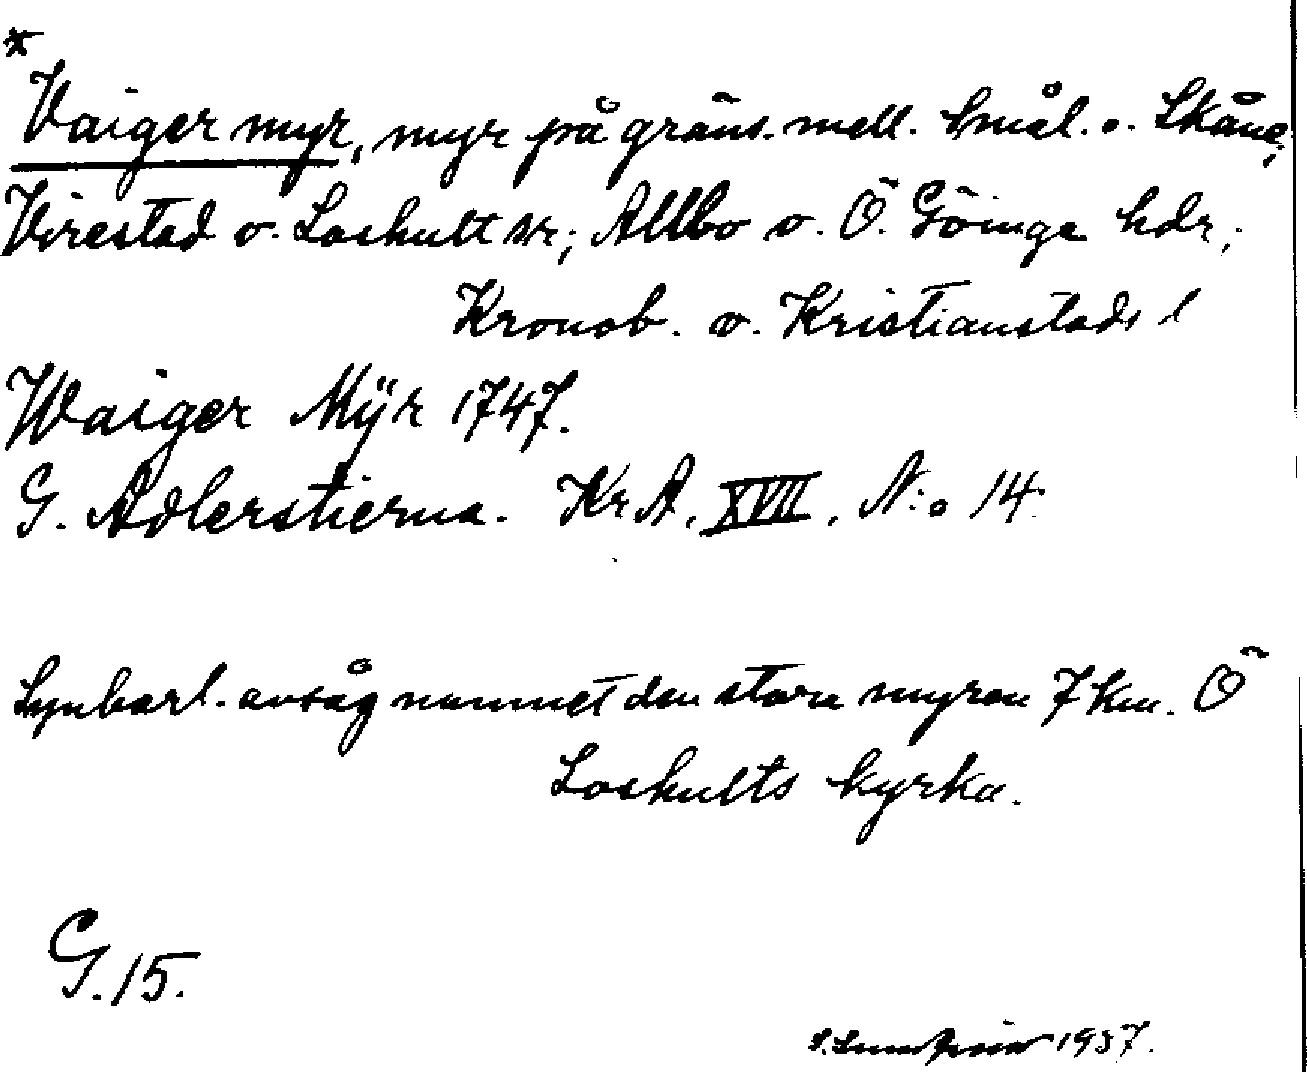 *
Vaiger myr, myr på gräns. mell. Smål. o. Skåne;
Virestad o. Loshult snr; Allbo o. Ö. Göinge hdr;
Kronob. o. Kristianstads l
Waiger Mÿr 1747.
G. Adlerstierna. Kr. A. XVII. N:o 14.
Synbarl. avsåg namnet den stora myren 7 km. Ö
Loshults kyrka.
G. 15.
1937.